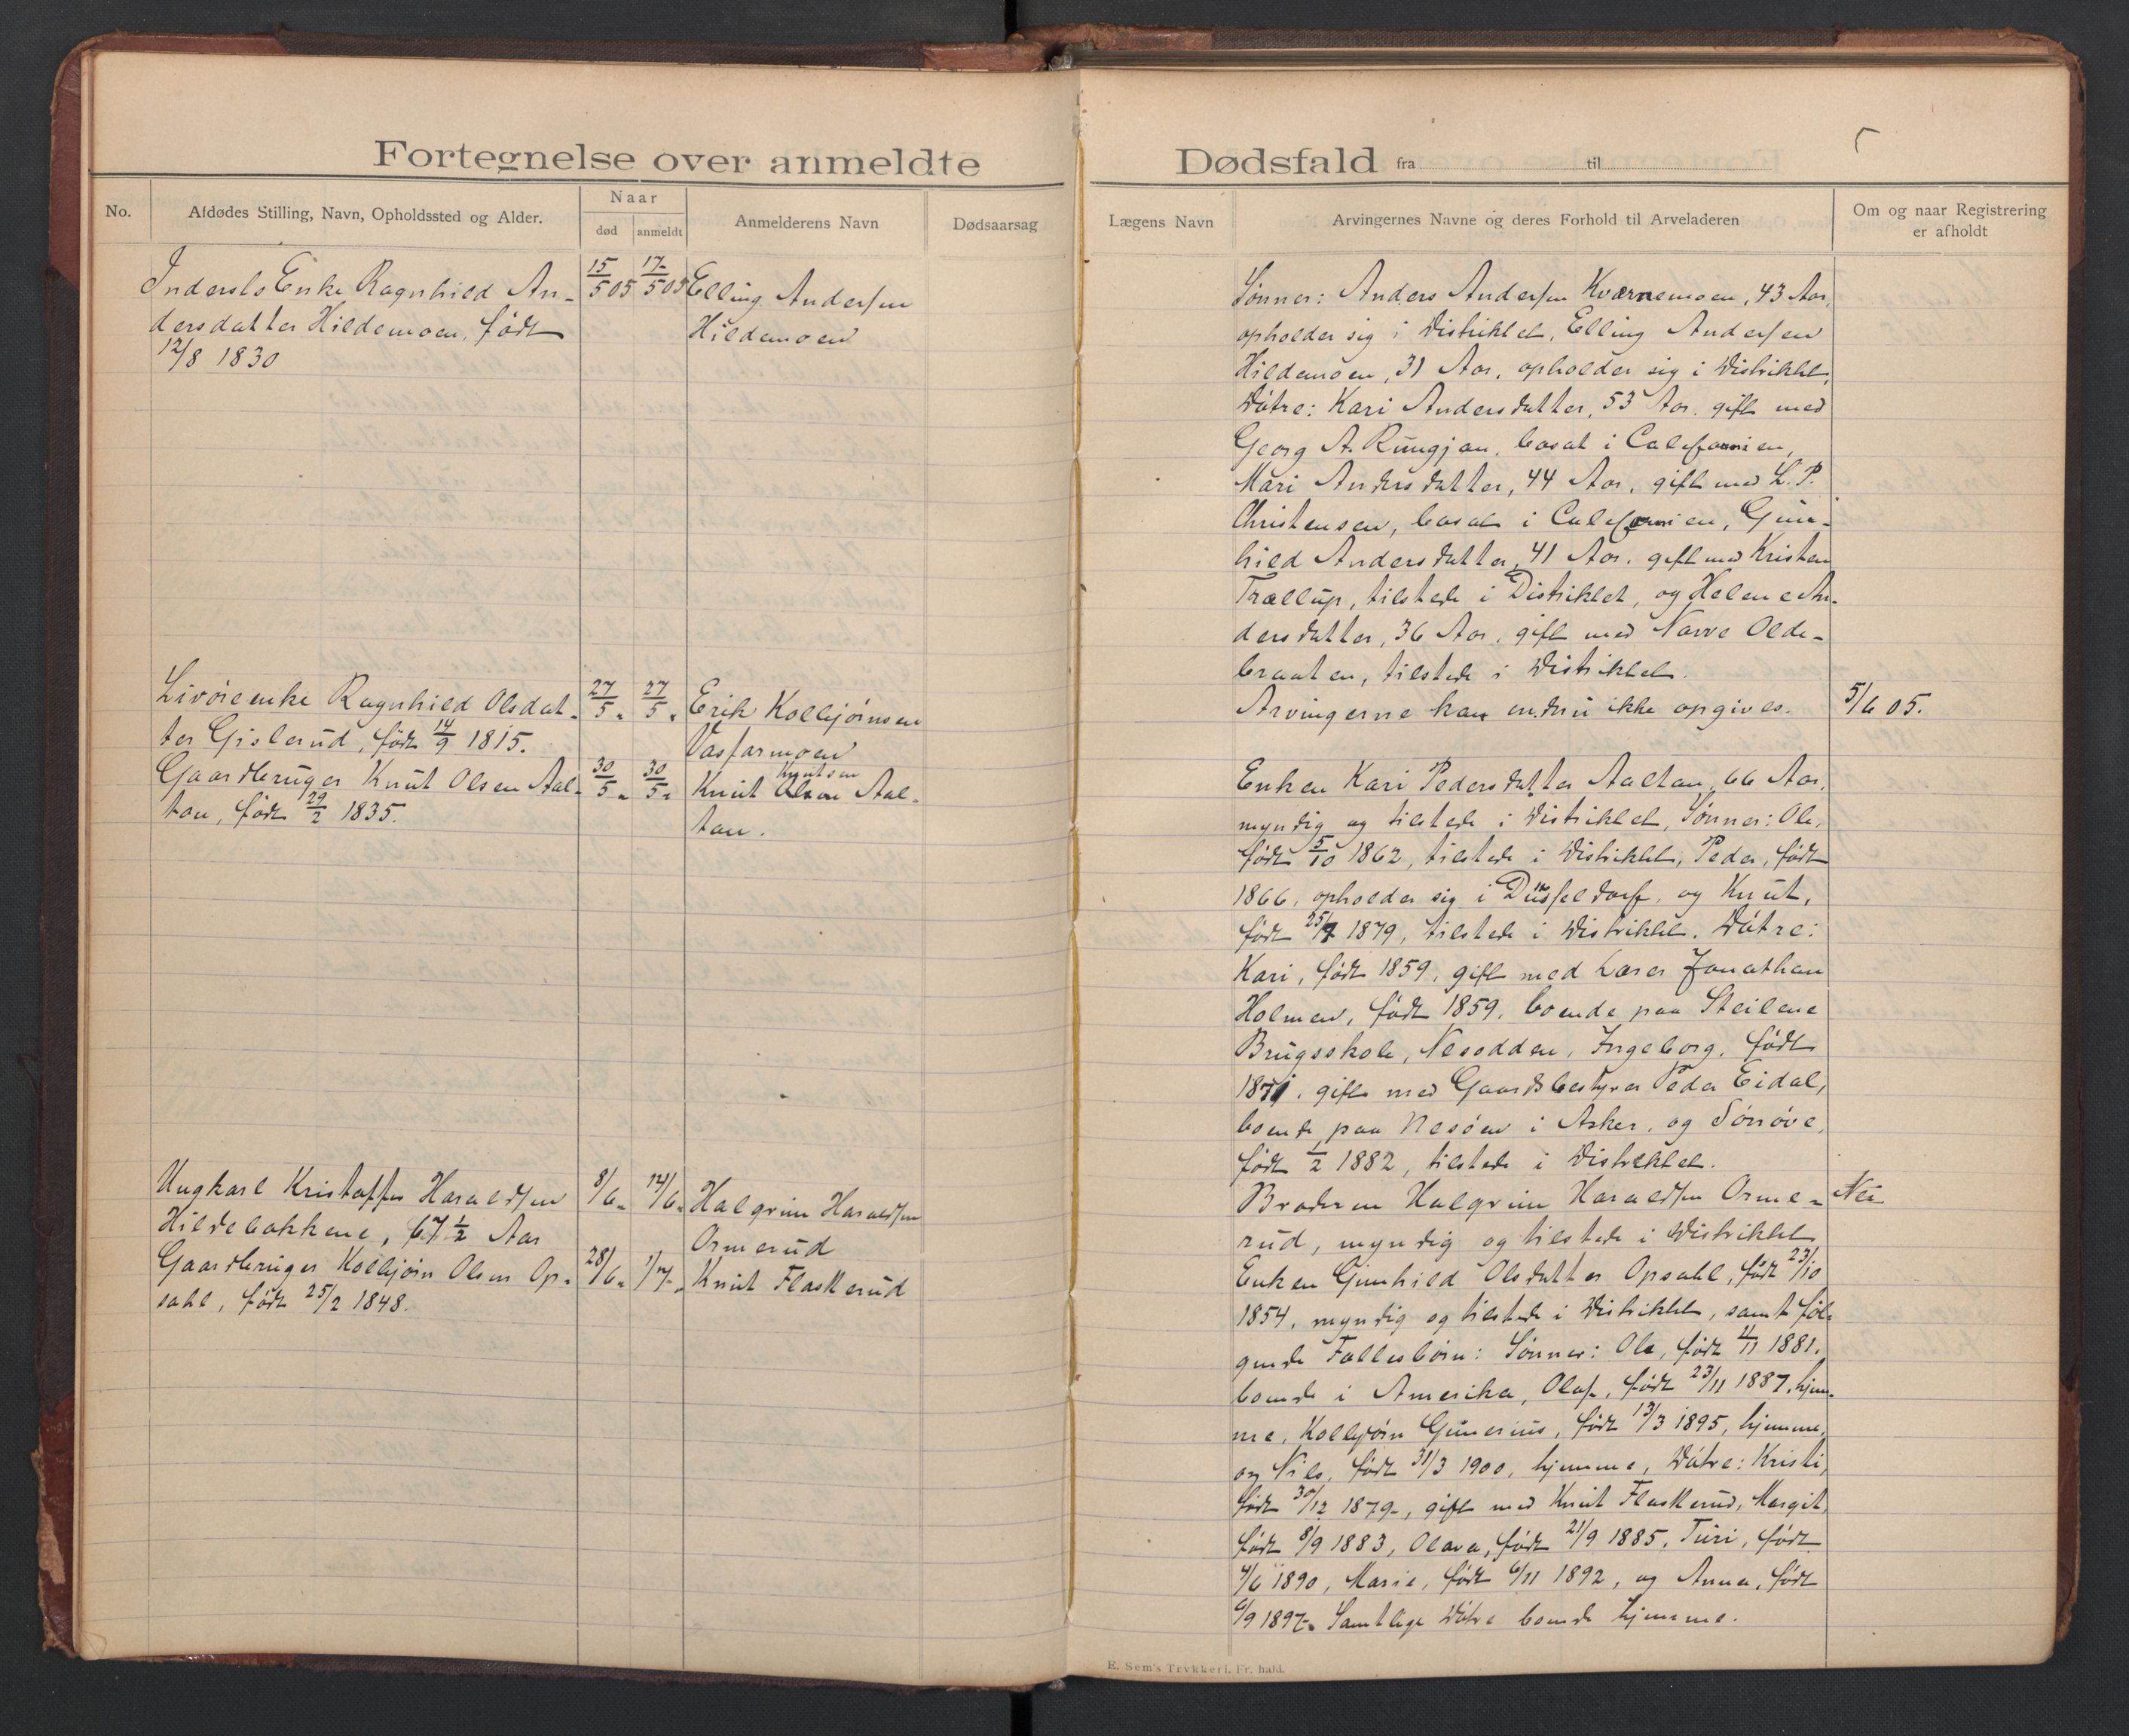 Fortegnelse over anmeldte
Dødsfald fra til
No.
Afdødes Stilling, Navn, Opholdssted og Alder.
Naar
død
anmeldt
Anmelderens Navn
Dødsaarsag
Lægens Navn
Arvingernes Navne og deres Forhold til Arveladeren
Om og naar Registrering
er afholdt
Indersts Enke Ragnhild An-
dersdatter Hildemoen, født
12/8 1830
15/5 05
17/5 05
Elling Andersen
Hildemoen
Sønner: Anders Andersen Kværnemoen, 43 Aar,
opholder sig i Distriktet, Elling Andersen
Hildemoen, 31 Aar, opholder sig i Distriktet,
Døtre: Kari Andersdatter, 53 Aar, gift med
Georg A. Rungjan, bosat i Californien,
Mari Andersdatter, 44 Aar, gift med L. P.
Christensen, bosat i Californien, Gun-
hild Andersdatter, 41 Aar, gift med Kristen
Trællup, tilstede i Distriktet, og Helene An-
dersdatter, 36 Aar, gift med Narve Olde-
braaten, tilstede i Distriktet.
Livøreenke Ragnhild Olsdat-
ter Gislerud, født 14/9 1815.
27/5 "
27/5 "
Erik Kolbjørnsen
Vasfarmoen
Arvingerne kan endnu ikke opgives.
5/6 05.
Gaardbruger Knut Olsen Aal-
ton, født 29/2 1835.
30/5 "
30/5 "
Knutsen
Knut Olsen Aal-
ton.
Enken Kari Pedersdatter Aalton, 66 Aar,
myndig og tilstede i Distriktet, Sønner: Ole,
født 5/10 1862, tilstede i Distriktet, Peder, født
1866, opholder sig i Düsseldorf, og Knut,
født 25/7 1879, tilstede i Distriktet. Døtre:
Kari, født 1859, gift med Lærer Jonathan
Holmen, født 1859, boende paa Steilene
Brugsskole, Nesodden, Ingeborg, født
1871, gift med Gaardsbestyrer Peder Eidal,
boende paa Nesøen i Asker, og Sønnøve,
født 1/2 1882, tilstede i Distriktet.
Ungkarl Kristoffer Haraldsen
Hildebakkene, 67 1/2 Aar
8/6 "
14/6 "
Halgrim Haraldsen
Ormerud
Broderen Halgrim Haraldsen Orme-
rud, myndig og tilstede i Distriktet
Nei
Gaardbruger Kolbjørn Olsen Op-
sahl, født 25/2 1848.
28/6 "
1/7 "
Knut Flaskerud
Enken Gunhild Olsdatter Opsahl, født 23/10
1854, myndig og tilstede i Distriktet, samt føl-
gende Fællesbørn: Sønner: Ole, født 4/11 1881,
boende i Amerika, Olaf, født 23/11 1887, hjem-
me, Kolbjørn Gunerius, født 13/3 1895, hjemme,
og Nils, født 31/3 1900, hjemme, Døtre: Kristi,
født 30/12 1879, gift med Knut Flaskerud, Margit,
født 8/9 1883, Olava, født 21/9 1885, Turi, født
4/6 1890, Marie, født 6/11 1892, og Anna, født
6/9 1897. Samtlige Døtre boende hjemme.
E. Sem's Trykkeri, Fr. hald.